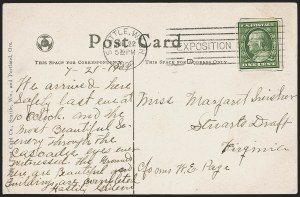 Post Card
THIS SPACE FOR CORRESPONDENCE.
THIS SPACE FOR ADDRESS ONLY.
SEATTLE, WASH.
EXPOSITION
7-21-1909
We arrived here
safely last eve at
10 o'clock. and the
most Beautiful Sc-
enery through the
Cascades eyes ever
witnessed. The grounds
here are beautiful and
buildings are complete.
Hastily
Miss Margaret
Stuarts Draft
Virginia
c/o Mrs W. E. Page